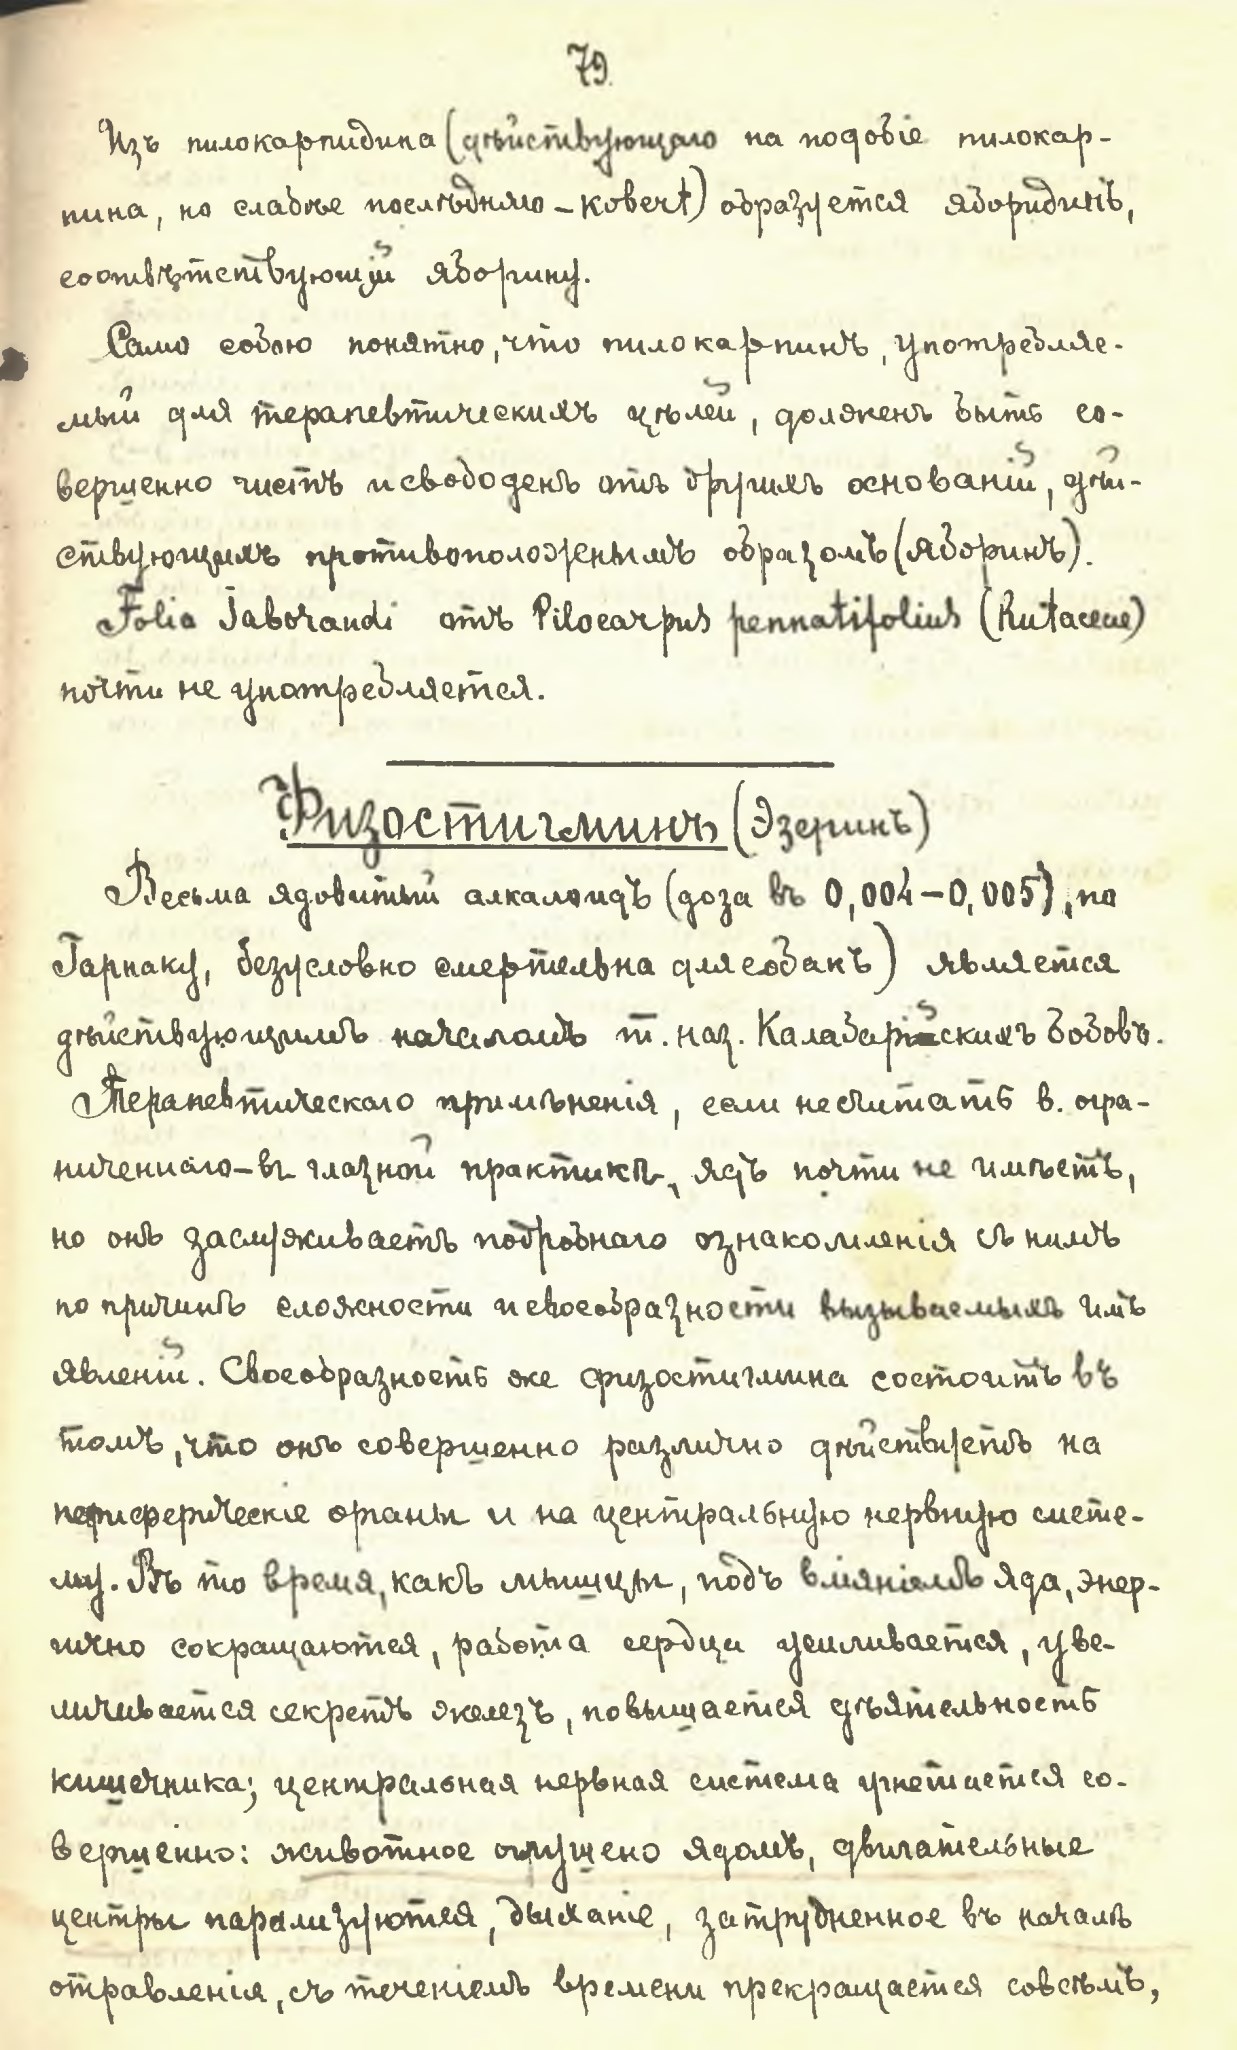 79.
Изъ пилокарпидина (дѣйствующаго на подобіе пилокар-
пина, но слабѣе послѣдняго – Kobert) образуется яборидинъ,
соотвѣтствующій яборину.
Само собою понятно, что пилокарпинъ, употребляе-
мый для терапевтическихъ цѣлей, долженъ быть со-
вершенно чистъ и свободенъ отъ другихъ основаній, дѣй-
ствующихъ противоположнымъ образомъ (яборинъ).
Folia Jaborandi отъ Pilocarpus pennatifolius (Rutaceae)
почти не употребляется.
Физостигминъ (Эзеринъ)
Весьма ядовитый алкалоидъ (доза въ 0,004–0,005), по
Гарнаку, безусловно смертельна для собакъ) является
дѣйствующимъ началомъ т. наз. Калабарійскихъ бобовъ.
Терапевтическаго примѣненія, если не считать в. огра-
ниченнаго – въ глазной практикѣ, ядъ почти не имѣетъ,
но онъ заслуживаетъ подробнаго ознакомленія съ нимъ
по причинѣ сложности и своеобразности вызываемыхъ имъ
явленій. Своеобразность же физостигмина состоитъ въ
томъ, что онъ совершенно различно дѣйствуетъ на
периферическіе органы и на центральную нервную систе-
му. Въ то время, какъ мышцы, подъ вліяніемъ яда, энер-
гично сокращаются, работа сердца усиливается, уве-
личивается секретъ железъ, повышается дѣятельность
кишечника; центральная нервная система угнетается со-
вершенно: животное оглушено ядомъ, двигательные
центры парализуются, дыханіе, затрудненное въ началѣ
отравленія, съ теченіемъ времени прекращается совсѣмъ,